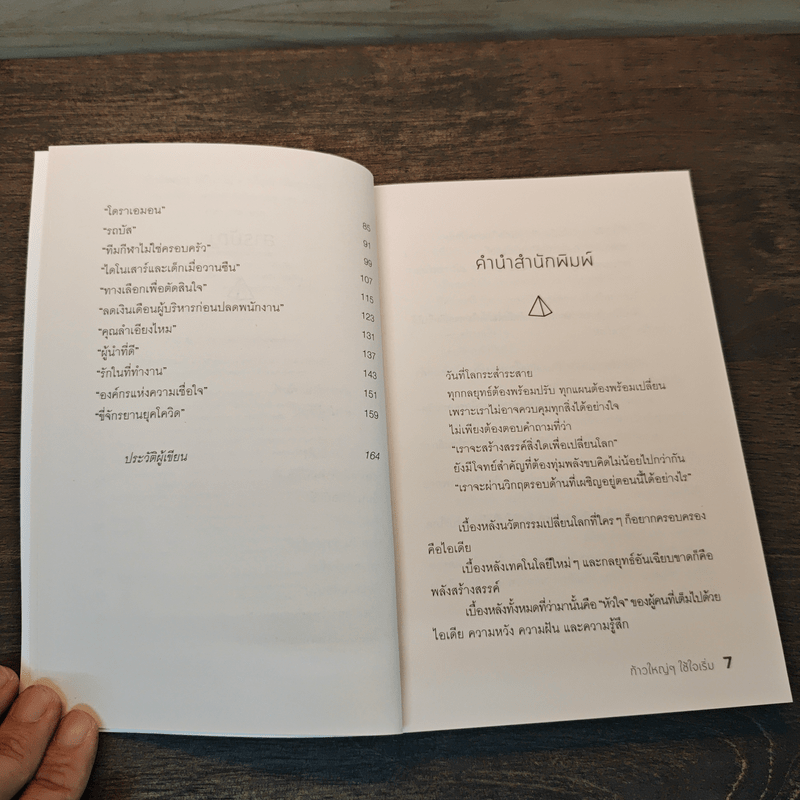 "โดราเอมอน" 85
"รถบัส" 91
"ทีมกีฬาไม่ใช่ครอบครัว" 99
"ไดโนเสาร์และเด็กเมื่อวานซืน" 107
"ทางเลือกเพื่อตัดสินใจ" 115
"ลดเงินเดือนผู้บริหารก่อนปลดพนักงาน" 123
"คุณลำเอียงไหม" 131
"ผู้นำที่ดี" 137
"รักในที่ทำงาน" 143
"องค์กรแห่งความเชื่อใจ" 151
"ขี่จักรยานยุคโควิด" 159
ประวัติผู้เขียน 164
คำนำสำนักพิมพ์
วันที่โลกระส่ำระสาย
ทุกกลยุทธ์ต้องพร้อมปรับ ทุกแผนต้องพร้อมเปลี่ยน
เพราะเราไม่อาจควบคุมทุกสิ่งได้อย่างใจ
ไม่เพียงต้องตอบคำถามที่ว่า
"เราจะสร้างสรรค์สิ่งใดเพื่อเปลี่ยนโลก"
ยังมีโจทย์สำคัญที่ต้องทุ่มพลังขบคิดไม่น้อยไปกว่ากัน
"เราจะผ่านวิกฤตรอบด้านที่เผชิญอยู่ตอนนี้ได้อย่างไร"
เบื้องหลังนวัตกรรมเปลี่ยนโลกที่ใคร ๆ ก็อยากครอบครอง
คือไอเดีย
เบื้องหลังเทคโนโลยีใหม่ ๆ และกลยุทธ์อันเฉียบขาดก็คือ
พลังสร้างสรรค์
เบื้องหลังทั้งหมดที่ว่ามานั้นคือ "หัวใจ" ของผู้คนที่เต็มไปด้วย
ไอเดีย ความหวัง ความฝัน และความรู้สึก
ก้าวใหญ่ๆ ใช้ใจเริ่ม 7